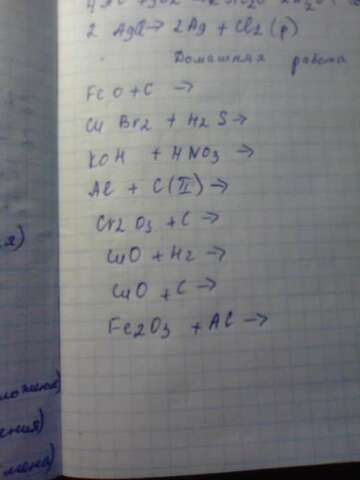 2 AgCl → 2Ag + Cl2 (р)
Домашняя работа
FeO + C →
CuBr2 + H2S →
KOH + HNO3 →
Al + C (II) →
Cr2O3 + C →
CuO + H2 →
CuO + C →
Fe2O3 + Al →
я)
ложения)
ения)
мена)